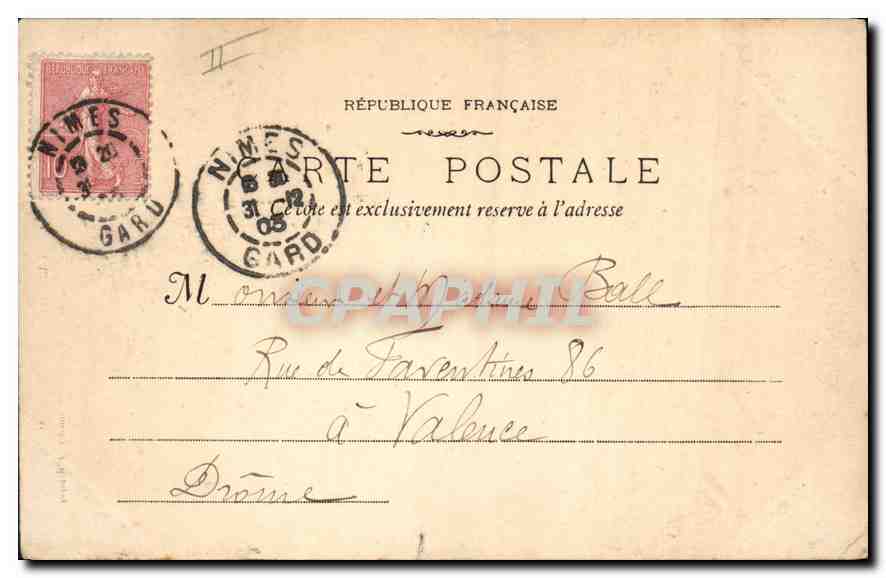 II
REPUBLIQUE FRANÇAISE
10
NIMES
GARD
NIMES
31 12
05
GARD
RÉPUBLIQUE FRANÇAISE
CARTE POSTALE
Ce côté est exclusivement reservé à l'adresse
Monsieur et Madame Ball
Rue de Faventines 86
à Valence
Drôme
GRAPHIL